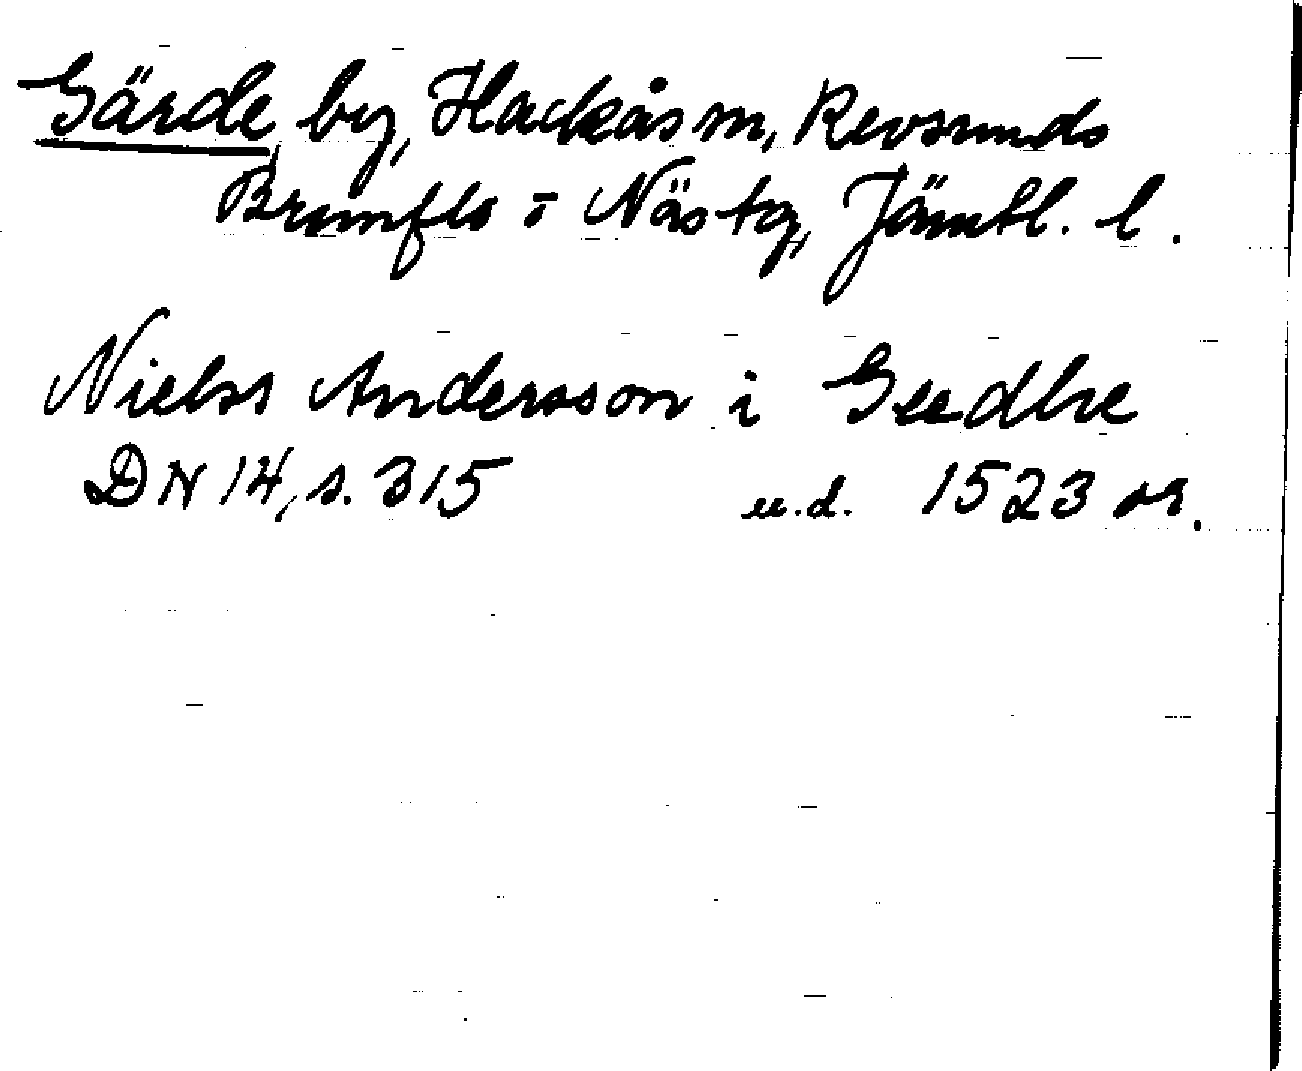 Gärde by, Hackås sn, Revsunds
Brunflo o Näs tg, Jämtl. l.
Nielss Andersson i Geedhe
DN 14, s. 315 u.d. 1523 or.